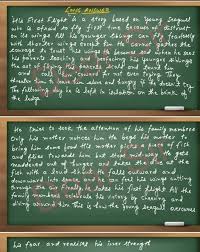 Long Answer
His First Flight is a story based on Young Seagull
who is afraid to fly first time because of difficult
on its wings. All his younger sibling can fly fearlessly
with shorter wings except him. He cannot gather the
courage to trust his wings to assume and where he sees
his parents teaching and perfecting his younger siblings
the art of flying. His parents and
and call him coward for not even trying. They
threaten him to leave him alone and hungry if he doesn't fly.
The following day he is left in isolation on the brink of
the ledge
He tried to seek the attention of his family members
Only his mother notices him. He begs his mother to
bring him some food. His mother picks a piece of fish
and flies towards him but stops mid way to get
maddened out of hunger and takes the dive at the
fish with a loud shout. He falls outward and
downward into space and he can feel his wings cutting
through the air. Finally he takes his first flight. All the
family members celebrate his victory by cheering and
diving around him. This is how the young seagull overcomes
his fear and realises his inner strength